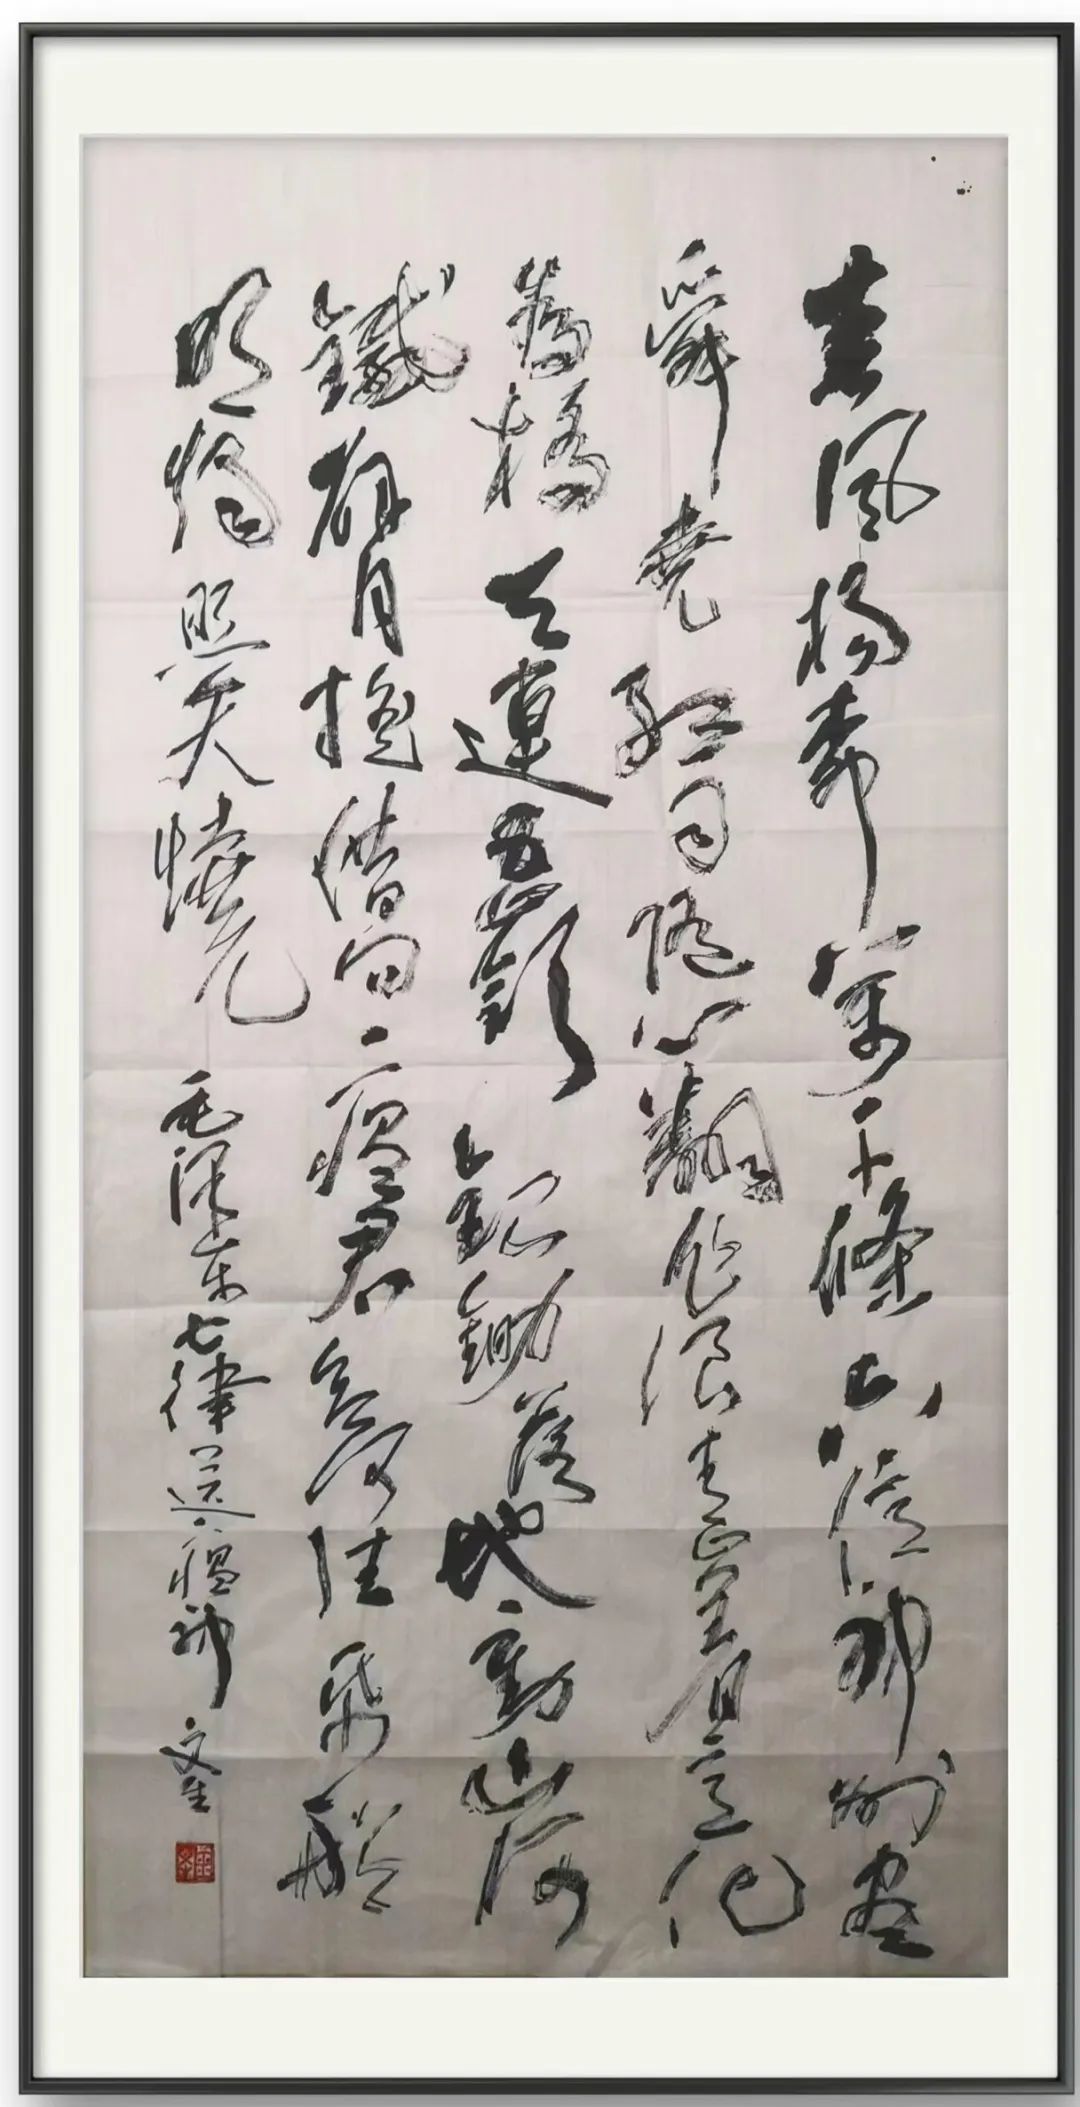 春風楊柳萬千條六億神州盡
舜堯紅雨隨心翻作浪青山着意化
為橋天連五嶺銀鋤落地動山河
鐵臂搖借問瘟君欲何往紙船
明燭照天燒 毛澤東七律送瘟神 文生